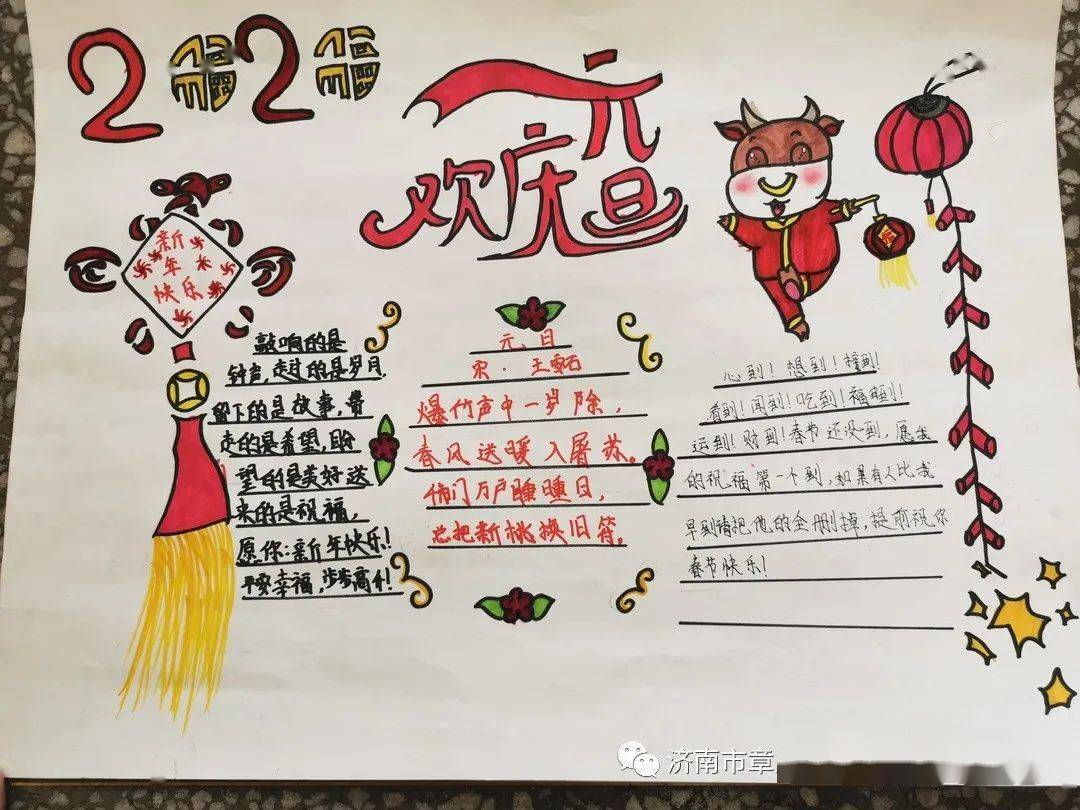 2福2福
欢庆元旦
新年快乐
敲响的是
钟声,走过的是岁月.
留下的是故事,带
走的是希望,盼
望的是美好送
来的是祝福,
愿你:新年快乐!
平安幸福,步步高升!
元、日
宋·王安石
爆竹声中一岁除,
春风送暖入屠苏。
门万户瞳瞳日,
总把新桃换旧符。
心到!想到!
看到!闻到!吃到!福到!
运到!财到!春节还没到,愿我
的祝福第一个到,如果有人比我
早到请把他的全删掉,提前祝你
春节快乐!
济南市章